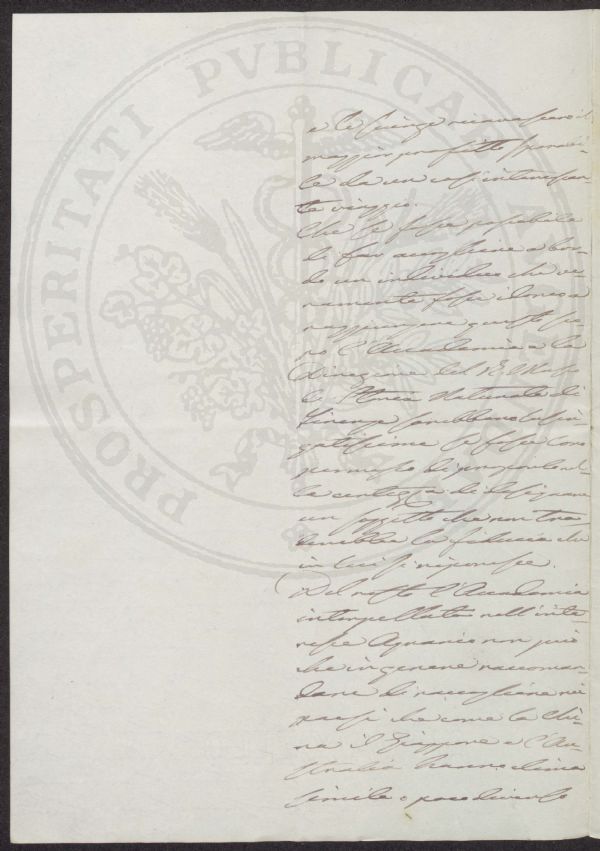 PROSPERITATI PVBLICAE AVGENDAE
e le scienze ricavassero il
maggior profitto sperabi-
le da un così interessan-
te viaggio.
Che se fosse possibile
di far accogliere a bor-
do un individuo che ve-
ramente fosse idoneo a
raggiungere questo sco-
po l'Accademia e la
Direzione del R. Museo
di Storia Naturale di
Firenze sarebbero obbli-
gatissime se fosse loro
permesso di proporlo col-
la certezza di designare
un soggetto che non tra-
direbbe la fiducia che
in lui si riponesse.
Del resto l'Accademia
interpellata nell'inte-
resse Agrario non può
che in genere raccoman-
dare di raccogliere nei
paesi che come la Chi-
na il Giappone e l'Au-
stralia hanno clima
simile o poco diverso